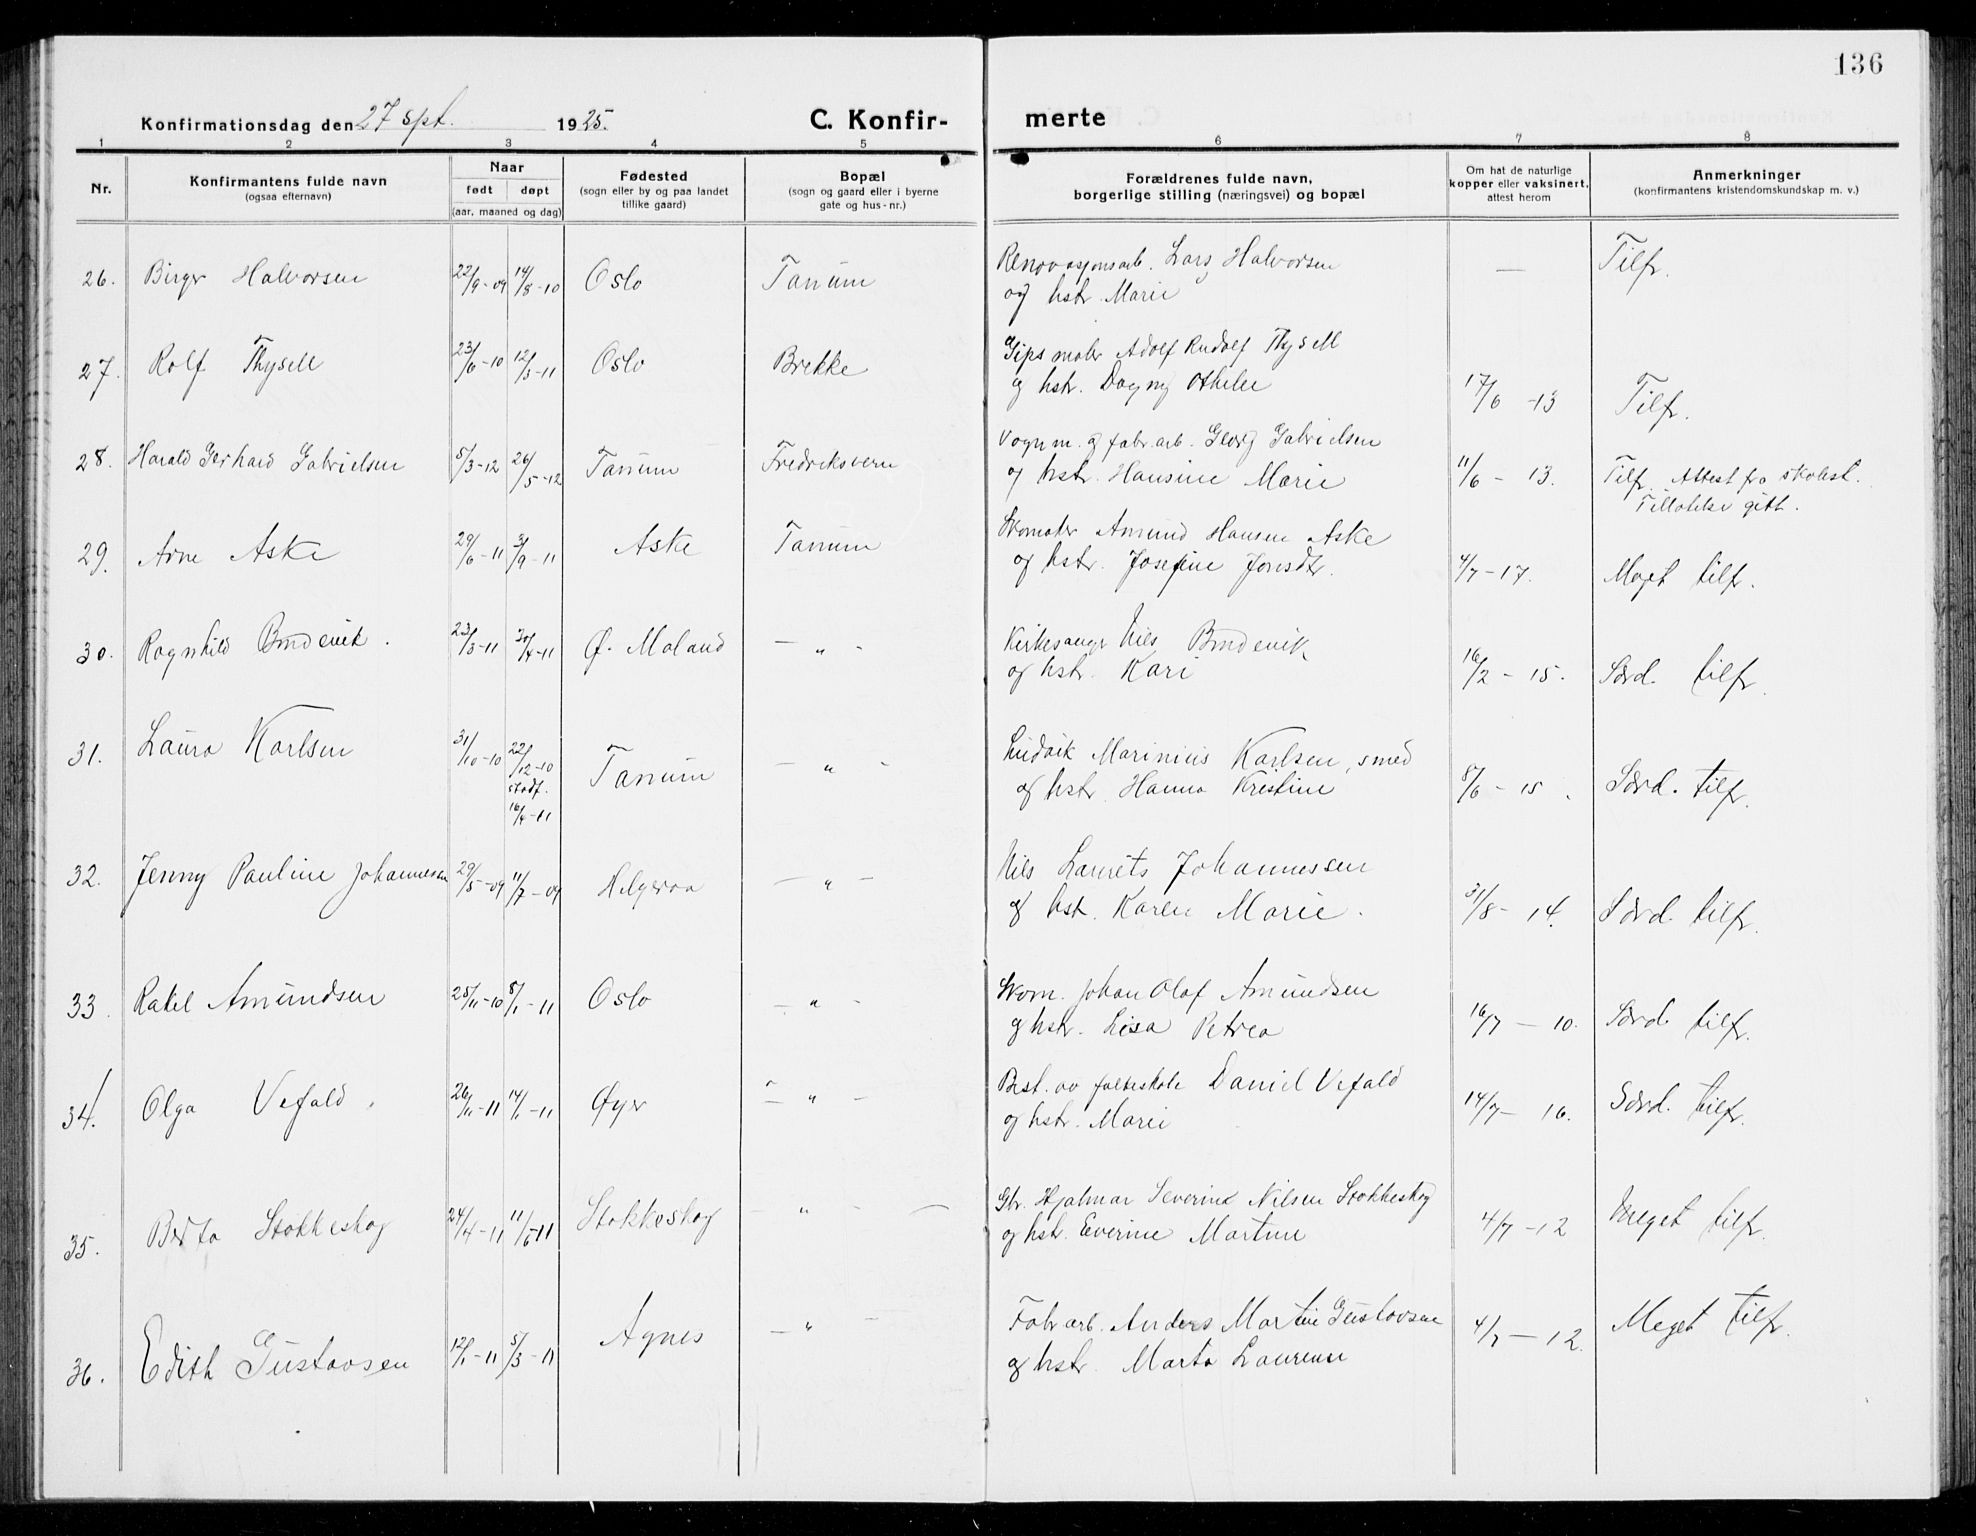 136
Konfirmationsdag den 27 spt. 1925.
C. Konfirmerte
1 2 3 4 5 6 7 8
Nr.
Konfirmantens fulde navn
(ogsaa efternavn)
Naar
født døpt
(aar, maaned og dag)
Fødested
(sogn eller by og paa landet
tillike gaard)
Bopæl
(sogn og gaard eller i byerne
gate og hus-nr.)
Forældrenes fulde navn,
borgerlige stilling (næringsvei) og bopæl
Om hat de naturlige
kopper eller vaksinert,
attest herom
Anmerkninger
(konfirmantens kristendomskundskap m. v.)
26. Birger Halvorsen 22/9-09 14/8-10 Oslo Tanum Renovasjonsarb. Lars Halvorsen — Tilfr.
og hstr. Marie
27. Rolf Thysell 23/6-10 12/3-11 Oslo Brekke Gipsmaker Adolf Rudolf Thysell
og hstr. Dagny Othilie 17/6 -13 Tilfr.
28. Harald Gerhard Gabrielsen 5/3-12 26/5-12 Tanum Fredriksvern Vognm. og fabr.arb. Georg Gabrielsen
og hstr. Hansine Marie 11/6 - 13. Tilfr. Attest fra skolest.
Tillatelse gitt.
29. Arne Aske 29/6-11 3/9-11 Aske Tanum Skomaker Amund Hansen Aske
og hstr. Josefine Jonsdtr. 4/7-17. Meget tilfr.
30. Ragnhild Bredevik. 23/3-11 30/4-11 Ø. Moland — „ - Kirkesanger Nils Bredevik
og hstr. Kari 16/2 - 15. Særd. tilfr.
31. Laura Karlsen 31/10-10 22/12-10 Tanum — „ - Ludvik Marinius Karlsen, smed
stadf.
16/4-11
og hstr. Hanna Kristine 8/6 - 15. Særd. tilfr.
32. Jenny Pauline Johannessen 29/5-09 11/7-09 Helgeroa — „ — Nils Laurits Johannessen
og hst. Karen Marie. 31/8 - 14. Særd. tilfr.
33 Rakel Amundsen 25/11-10 8/1-11 Oslo — „ - Skom. Johan Olaf Amundsen
og hstr. Lisa Petrea 16/7 — 10. Særd. tilfr.
34. Olga Vefald. 26/11-11 14/1-11 Øyer — „ — Best. av folkeskole Daniel Vefald
og hstr. Marie 14/7 - 16. Særd. tilfr.
35. Berta Stokkeskog 24/4-11 11/6-11 Stokkeskog — „ - — Gbr. Hjalmar Severin Nilsen Stokkeskog
og hstr. Everine Martine 4/7-12 Meget tilfr.
36. Edith Gustavsen 12/1-11 5/3-11 Agnes — „ — Fabr.arb. Anders Martin Gustavsen
og hstr. Marta Laurense 4/7 — 12. Meget tilfr.